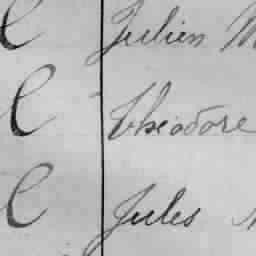 C Julien M
C Théodore
C Jules